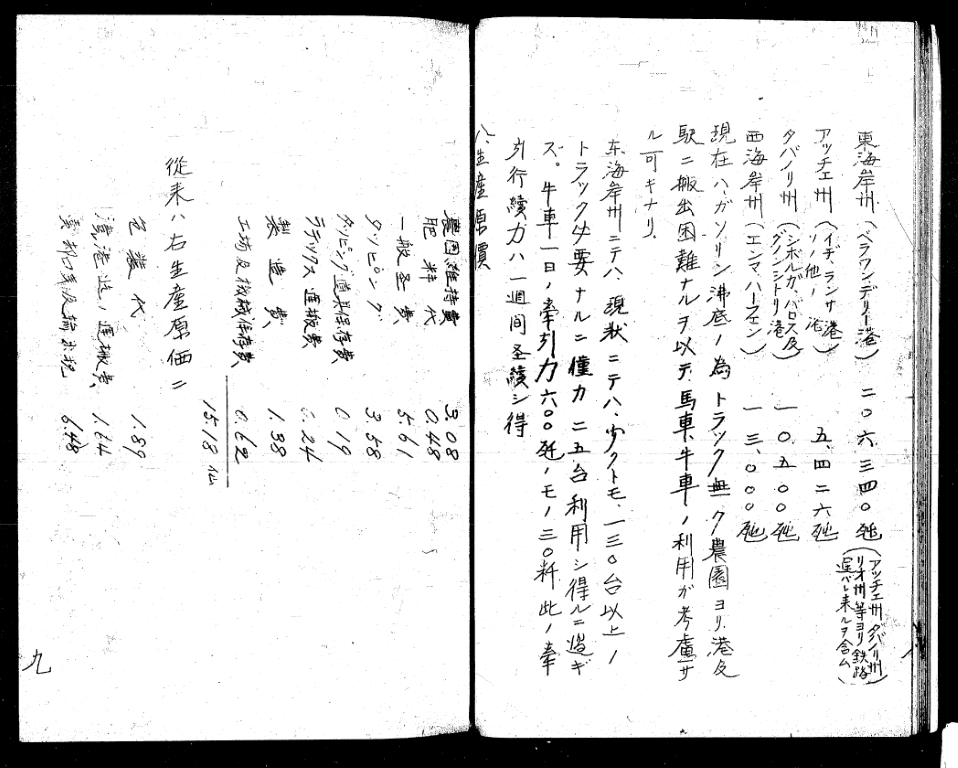 東海岸州(ベラワンデリー港) 二〇六、三四〇瓲(アッチェ州タパ(イ)リ州リオ州等ヨリ鉄路運バレ来ルヲ含ム)
アッチェ州(イヂ、ランサ港ソノ他ノ港) 五、四二六瓲
タパイリ州(シボルガ、バロス及グノンシトリ港) 一〇、五〇〇瓲
西海岸州(エンマハーフェン) 一三、〇〇〇瓲
現在ハ、ガソリン沸底ノ為トラック無ク農園ヨリ港及
駅ニ搬出困難ナルヲ以テ、馬車、牛車ノ利用ガ考慮サ
ル可キナリ、
东海岸州ニテハ、現状ニテハ、少クトモ、一三〇台以上ノ
トラック必要ナルニ僅カ二五台利用シ得ルニ過ギ
ズ。牛車一日ノ牽引力六〇〇瓲ノモノ三〇粁此ノ牽
引行續力ハ一週間
シ得
八、生産原價
農園維持費 3.08
肥料代 0.48
一般
費 5.61
タッピング 3.58
タッピング道具保存費 0.19
ラテックス運搬費 0.24
製造費 1.38
工場及機械保存費 0.62
15.18 仙
從来ハ右生産原価ニ
包装代 1.89
港迄ノ運搬費、 1.64
及輸出税 6.48
九